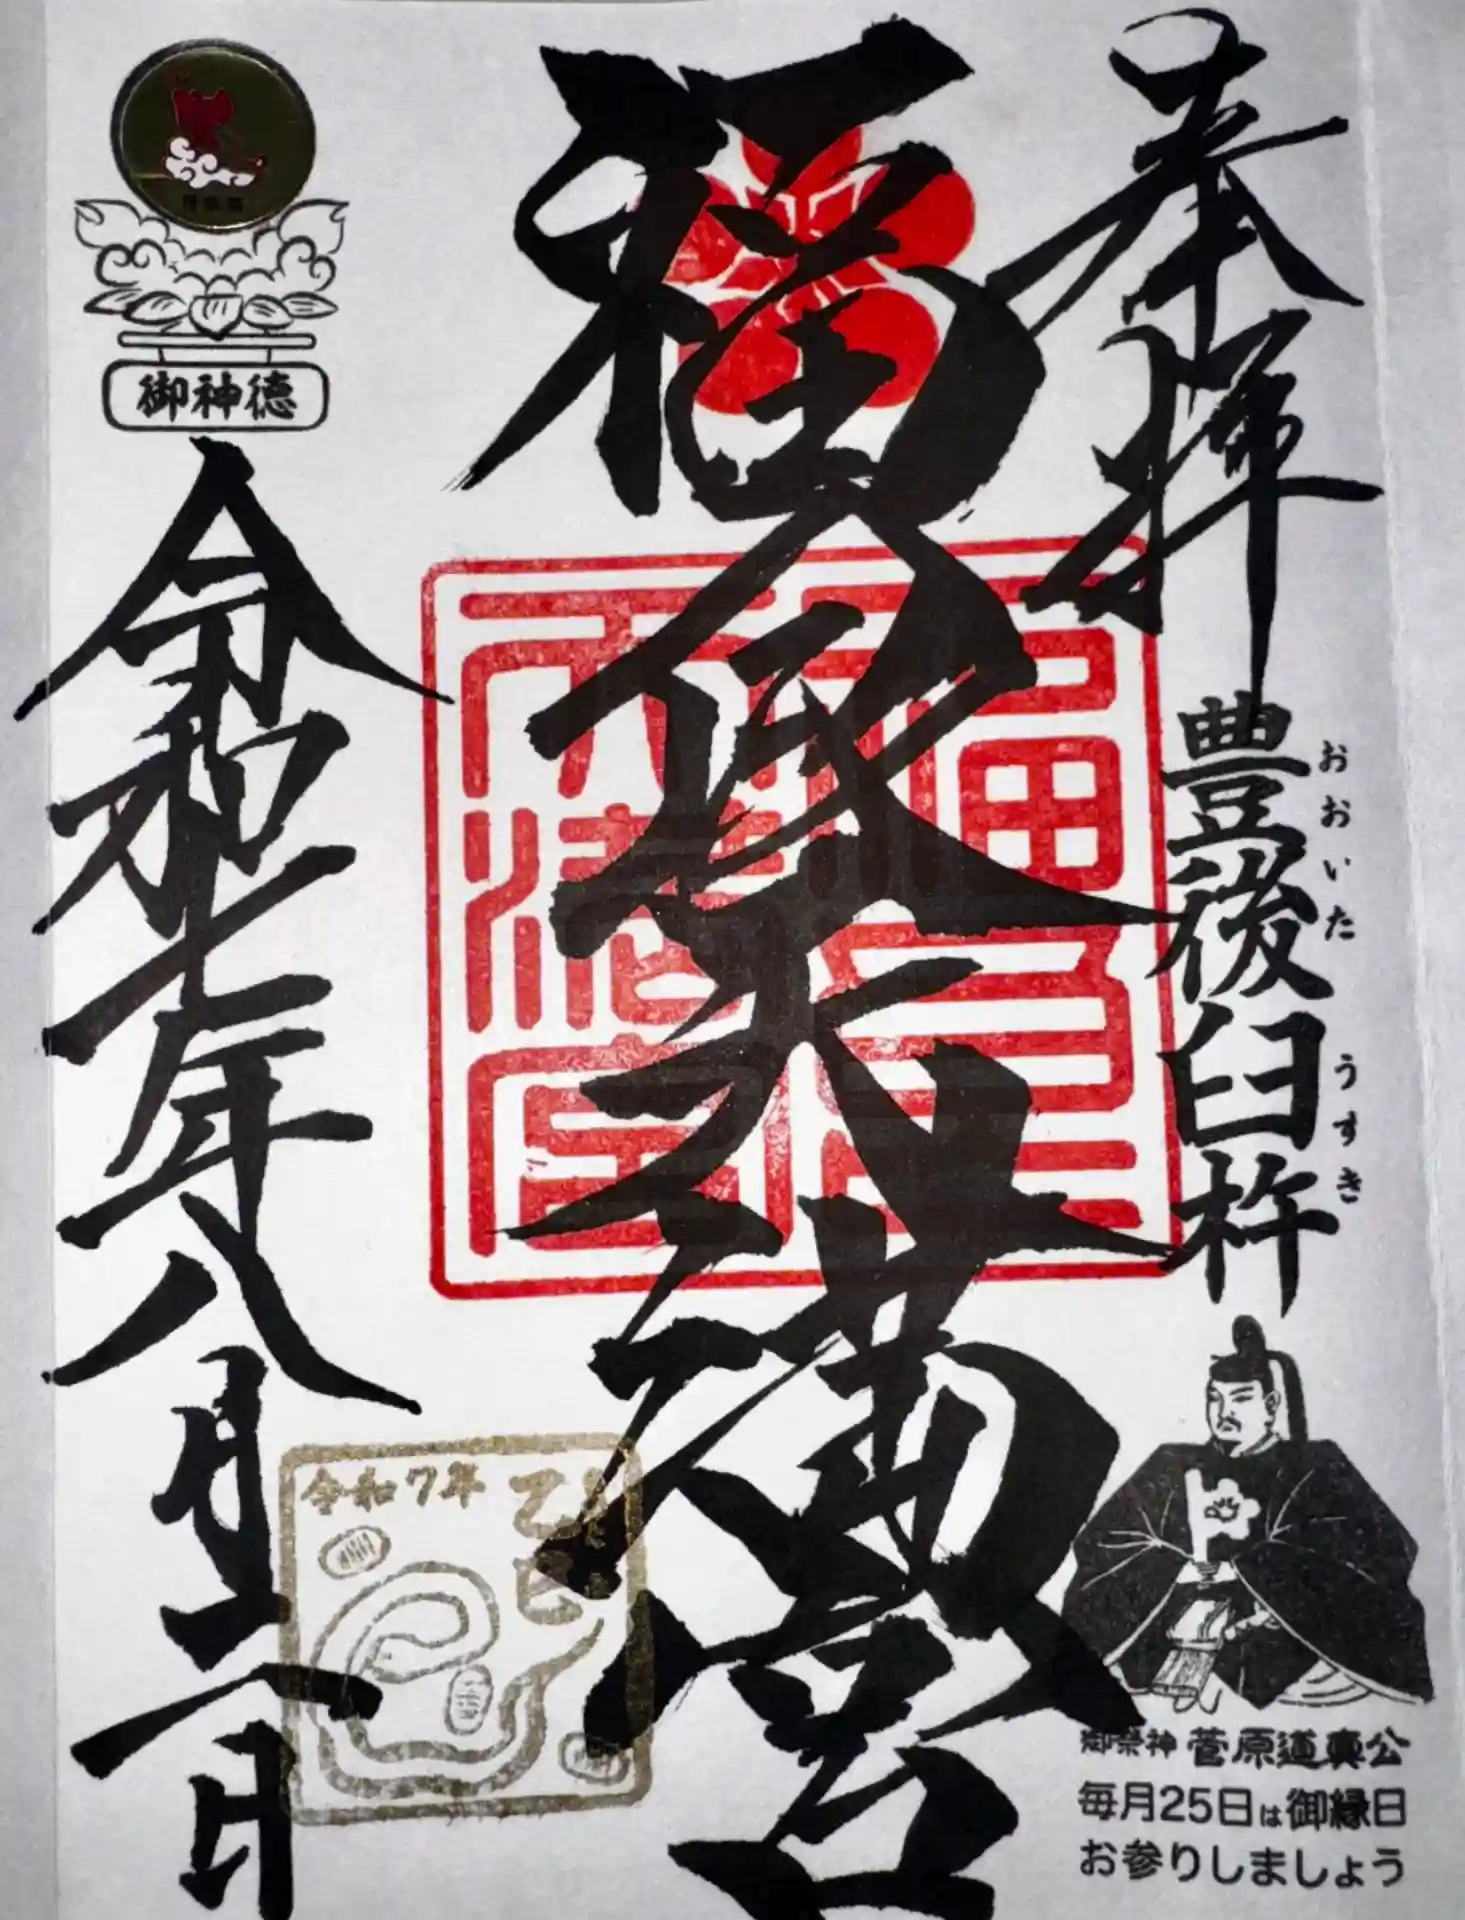 奉拝
豊後臼杵
おおいた うすき
御祭神 菅原道真公
毎月25日は御縁日
お参りしましょう
福良天満宮
福良
天満宮
御神徳
令和七年八月
令和7年
乙巳